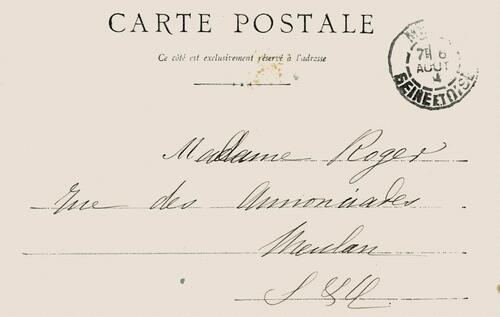 CARTE POSTALE
Ce côté est exclusivement réservé à l'adresse
7E 6
AOUT
SEINE ET OISE
Madame Roger
Rue des Annonciades
Meulan